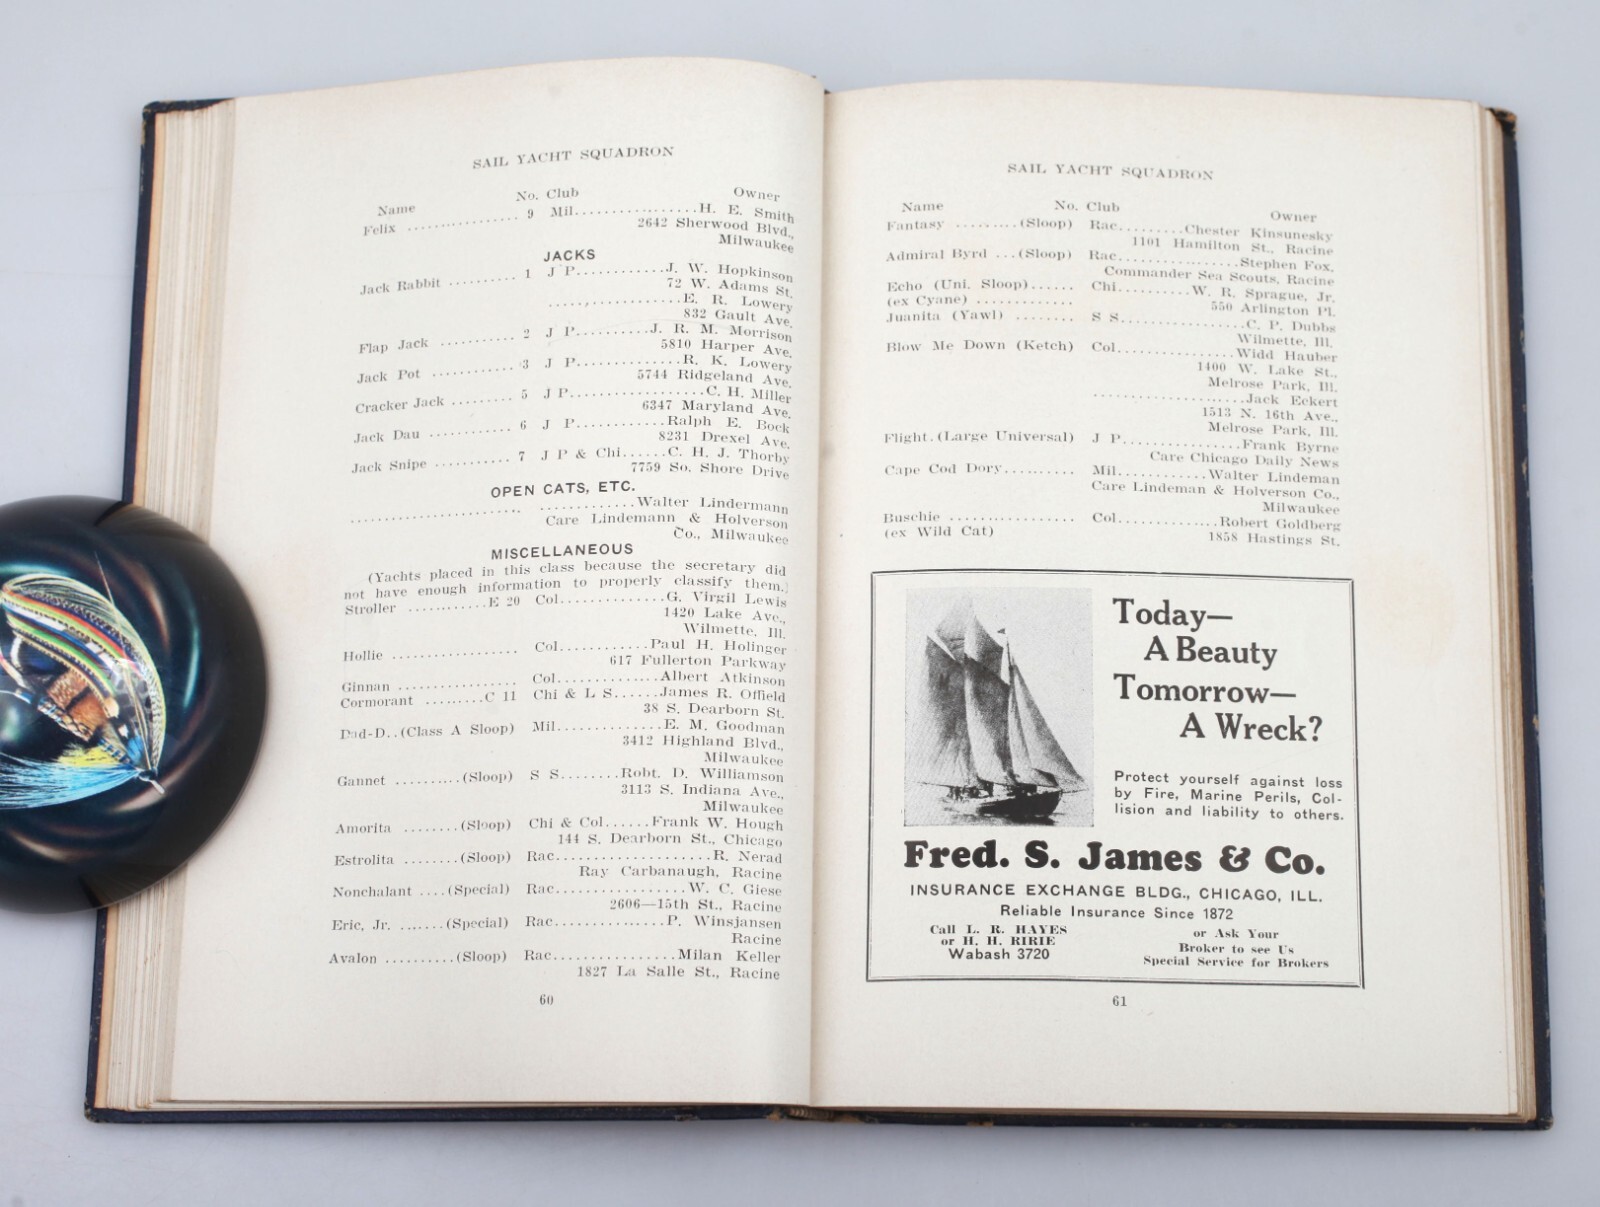 SAIL YACHT SQUADRON
Name No. Club Owner
Felix .............. 9 Mil...................H. E. Smith
2642 Sherwood Blvd.,
Milwaukee
JACKS
Jack Rabbit ......... 1 J P............J. W. Hopkinson
72 W. Adams St.
...................E. R. Lowery
832 Gault Ave.
Flap Jack .......... 2 J P..........J. R. M. Morrison
5810 Harper Ave.
Jack Pot ............ 3 J P...............R. K. Lowery
5744 Ridgeland Ave.
Cracker Jack ......... 5 J P...................C. H. Miller
6347 Maryland Ave.
Jack Dau ............ 6 J P............Ralph E. Bock
8231 Drexel Ave.
Jack Snipe ........... 7 J P & Chi......C. H. J. Thorby
7759 So. Shore Drive
OPEN CATS, ETC.
.......................... .............Walter Lindermann
Care Lindemann & Holverson
Co., Milwaukee
MISCELLANEOUS
(Yachts placed in this class because the secretary did
not have enough information to properly classify them.)
Stroller ............E 20 Col..............G. Virgil Lewis
1420 Lake Ave.,
Wilmette, Ill.
Hollie .................. Col............Paul H. Holinger
617 Fullerton Parkway
Ginnan ................. Col..............Albert Atkinson
Cormorant .........C 11 Chi & L S......James R. Offield
38 S. Dearborn St.
Dad-D..(Class A Sloop) Mil..............E. M. Goodman
3412 Highland Blvd.,
Milwaukee
Gannet ..........(Sloop) S S........Robt. D. Williamson
3113 S. Indiana Ave.,
Milwaukee
Amorita ........(Sloop) Chi & Col......Frank W. Hough
144 S. Dearborn St., Chicago
Estrolita ........(Sloop) Rac....................R. Nerad
Ray Carbanaugh, Racine
Nonchalant ....(Special) Rac.................W. C. Giese
2606—15th St., Racine
Eric, Jr. .......(Special) Rac..............P. Winsjansen
Racine
Avalon ..........(Sloop) Rac...............Milan Keller
1827 La Salle St., Racine
60
SAIL YACHT SQUADRON
Name No. Club Owner
Fantasy .........(Sloop) Rac.........Chester Kinsunesky
1101 Hamilton St., Racine
Admiral Byrd ...(Sloop) Rac................Stephen Fox,
Commander Sea Scouts, Racine
Echo (Uni. Sloop)...... Chi..........W. R. Sprague, Jr.
(ex Cyane) ............. 550 Arlington Pl.
Juanita (Yawl) ........ S S.................C. P. Dubbs
Wilmette, Ill.
Blow Me Down (Ketch) Col...............Widd Hauber
1400 W. Lake St.,
Melrose Park, Ill.
....................Jack Eckert
1513 N. 16th Ave.,
Melrose Park, Ill.
Flight.(Large Universal) J P................Frank Byrne
Care Chicago Daily News
Cape Cod Dory.......... Mil............Walter Lindeman
Care Lindeman & Holverson Co.,
Milwaukee
Buschie ................. Col.............Robert Goldberg
(ex Wild Cat) 1858 Hastings St.
Today—
A Beauty
Tomorrow—
A Wreck?
Protect yourself against loss
by Fire, Marine Perils, Col-
lision and liability to others.
Fred. S. James & Co.
INSURANCE EXCHANGE BLDG., CHICAGO, ILL.
Reliable Insurance Since 1872
Call L. R. HAYES
or H. H. RIRIE
Wabash 3720
or Ask Your
Broker to see Us
Special Service for Brokers
61